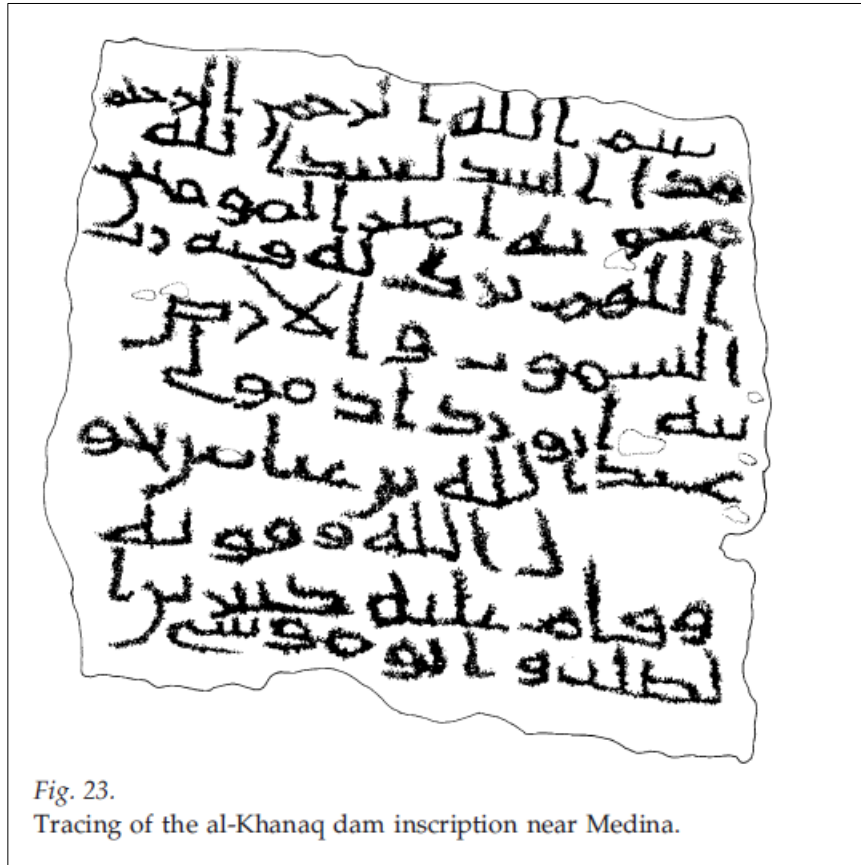 بسم الله الرحمن الرحيم
هذا السد لعبد الله
معويه امير المومنين
اللهم برك له فيه رب
السموت والارض
بنه ابو رداد مولى
عبد الله بن عباس بحو
ل الله وقوته
وقام عليه كثير بن ا
لصلت وابو موسى
Fig. 23.
Tracing of the al-Khanaq dam inscription near Medina.